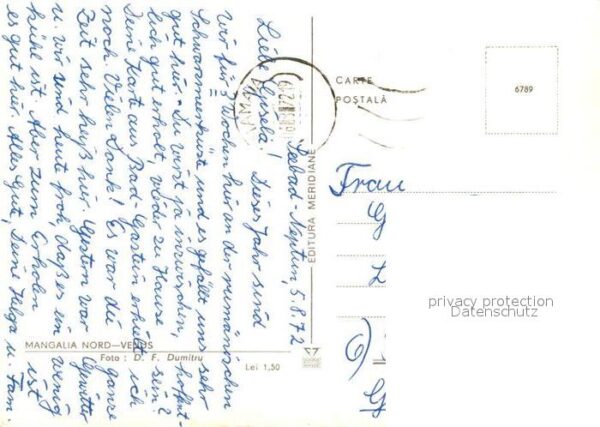 Seebad-Neptun, 5.8.72
Liebe Gisela! Dieses Jahr sind
wir für 3 Wochen hier an der rumänischen
Schwarzmeerküste und es gefällt uns sehr
gut hier. Du wirst ja inzwischen, hoffent-
lich gut erholt, wieder zu Hause sein?
Deine Karte aus Bad-Gastein erhielt ich
noch. Vielen Dank! Es war die ganze
Zeit sehr heiß hier. Gestern war Gewitter
u. wir sind heute froh, daß es ein wenig
kühl ist. Aber zum Erholen ist
es gut hier. Alles Gute, Deine Helga u. Fam.
MANGALIA NORD—VENUS
Foto: D. F. Dumitru
Lei 1,50
EDITURA MERIDIANE
CARTE
POȘTALĂ
6789
Frau
privacy protection
Datenschutz